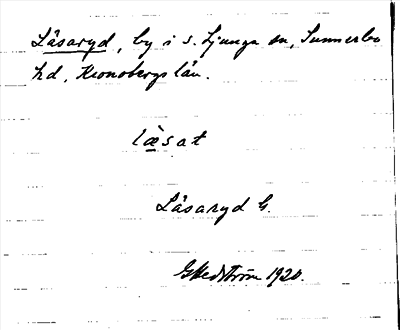 Låsaryd, by i s. Ljunga sn, Sunnerbo
hd, Kronobergs län.
læ̀sat
Låsaryd G.
GHedström 1920.